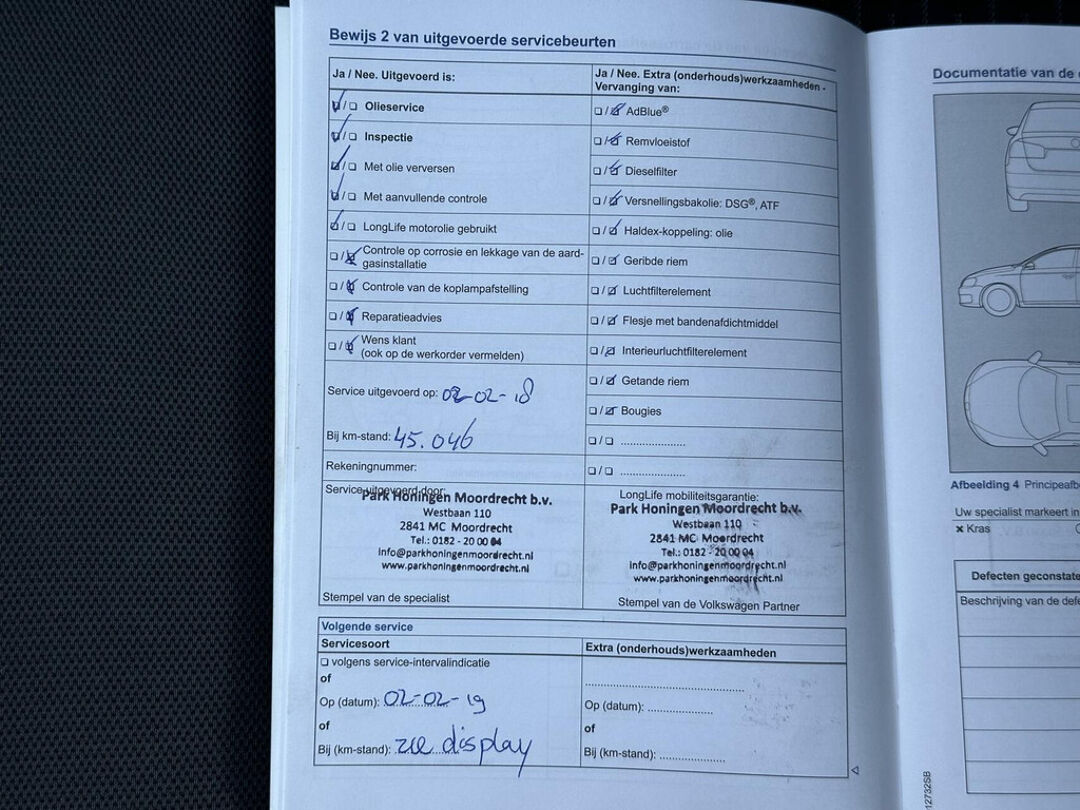 Bewijs 2 van uitgevoerde servicebeurten
Ja / Nee. Uitgevoerd is:
/ Olieservice
/ Inspectie
/ Met olie verversen
/ Met aanvullende controle
/ LongLife motorolie gebruikt
/ Controle op corrosie en lekkage van de aard-
gasinstallatie
/ Controle van de koplampafstelling
/ Reparatieadvies
/ Wens klant
(ook op de werkorder vermelden)
Service uitgevoerd op: 02-02-18
Bij km-stand: 45.046
Rekeningnummer:
Service uitgevoerd door:
Park Honingen Moordrecht b.v.
Westbaan 110
2841 MC Moordrecht
Tel.: 0182 - 20 00 04
info@parkhoningenmoordrecht.nl
www.parkhoningenmoordrecht.nl
Stempel van de specialist
Ja / Nee. Extra (onderhouds)werkzaamheden -
Vervanging van:
/ AdBlue®
/ Remvloeistof
/ Dieselfilter
/ Versnellingsbakolie: DSG®, ATF
/ Haldex-koppeling: olie
/ Geribde riem
/ Luchtfilterelement
/ Flesje met bandenafdichtmiddel
/ Interieurluchtfilterelement
/ Getande riem
/ Bougies
/ ......................
/ ......................
LongLife mobiliteitsgarantie:
Park Honingen Moordrecht b.v.
Westbaan 110
2841 MC Moordrecht
Tel.: 0182 - 20 00 04
info@parkhoningenmoordrecht.nl
www.parkhoningenmoordrecht.nl
Stempel van de Volkswagen Partner
Volgende service
Servicesoort
volgens service-intervalindicatie
of
Op (datum): 02-02-19
of
Bij (km-stand): zie display
Extra (onderhouds)werkzaamheden
Op (datum): ......................
of
Bij (km-stand): ......................
Documentatie van de
Afbeelding 4 Principeafb
Uw specialist markeert in
× Kras
Defecten geconstate
Beschrijving van de defe
12732SB